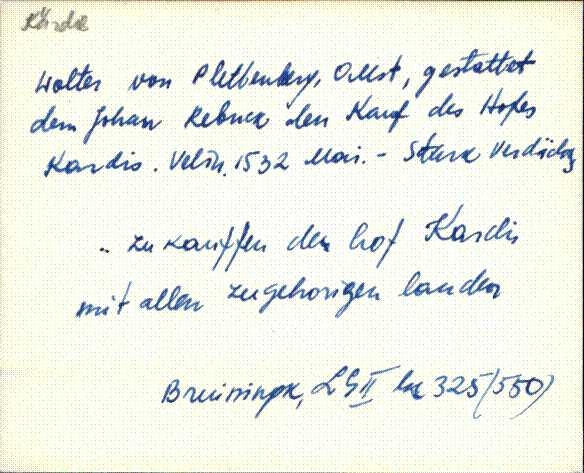 Kärde
Wolter von Plettenberg, OMst, gestattet
dem Johan Rebuck den Kauf des Hofes
Kardis. Velin, 1532 Mai. - Stark verdächtig
.. zu kauffen den hof Kardis
mit allen zugehorigen landen
Bruiningk, LG II lk 325 (550)